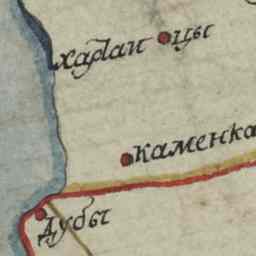 хараи цы
каменка
Дубы